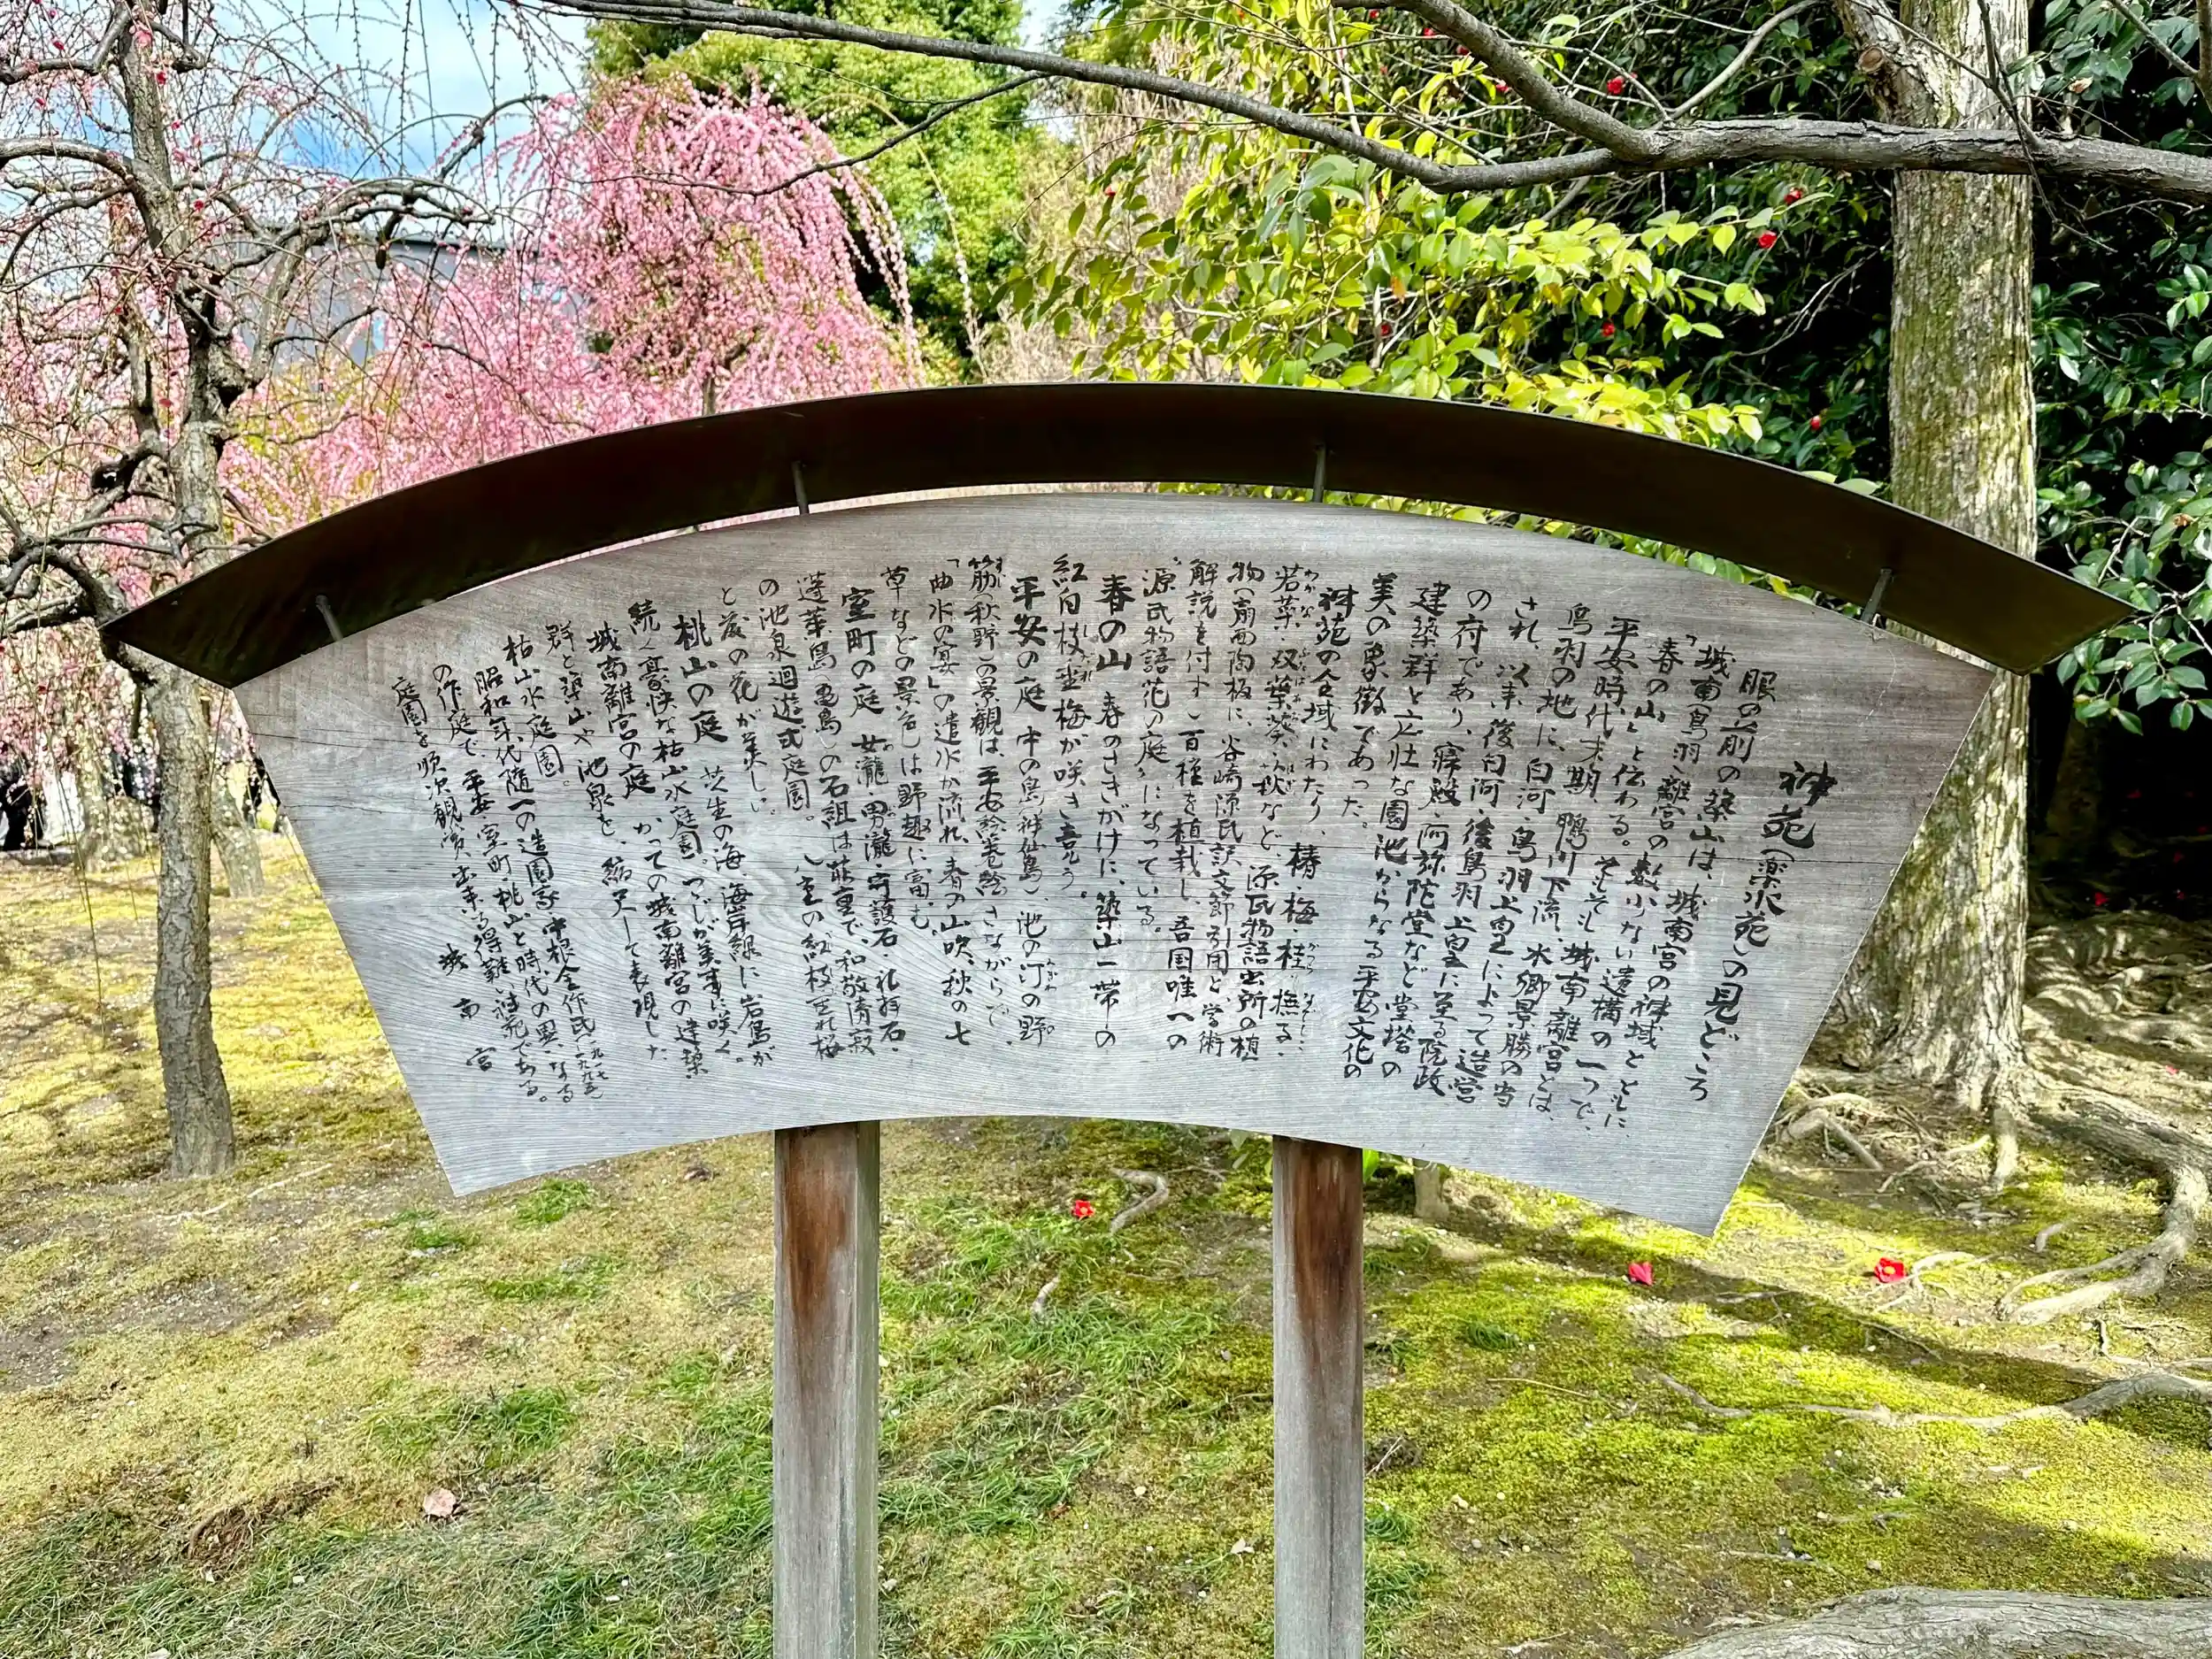 神苑(楽水苑)の見どころ
眼の前の築山は、城南宮の神域とともに、
「城南(鳥羽)離宮の数少ない遺構の一つで、
春の山」と伝わる。そもそも城南離宮とは、
平安時代末期、鴨川下流、水郷景勝の当
鳥羽の地に、白河・鳥羽上皇によって造営
され、以来、後白河・後鳥羽上皇に至る院政
の府であり、寝殿・阿弥陀堂など堂塔の
建築群と広壮な園池からなる平安文化の
美の象徴であった。
神苑の全域にわたり、椿・梅・桂・撫子・
若菜・双葉葵・萩など、源氏物語出所の植
物(扇面陶板に、谷崎源氏訳文節引用と、学術
解説を付す)百種を植栽し、吾国唯一の
"源氏物語花の庭"になっている。
春の山 春のさきがけに、築山一帯の
紅白枝垂梅が咲き競う。
平安の庭 中の島(神仙島)、池の汀の野
筋(秋野)の景観は、平安絵巻絵さながらで、
「曲水の宴」の遣水が流れ、春の山吹、秋の七
草などの景色は野趣に富む。
室町の庭 女瀧・男瀧・守護石・礼拝石・
蓬莱島(亀島)の石組は荘重で、和敬清寂
の池泉廻遊式庭園。八重の紅枝垂れ桜
と藤の花が美しい。
桃山の庭 芝生の海、海岸線に岩島が
続く豪快な枯山水庭園。つつじが美事に咲く。
城南離宮の庭 かつての城南離宮の建築
群と築山や池泉を、縮尺して表現した
枯山水庭園。
昭和年代随一の造園家中根金作氏(一九一七〜一九九五)
の作庭で、平安・室町・桃山と時代の異なる
庭園を順次観賞出来る得難い神苑である。
城南宮